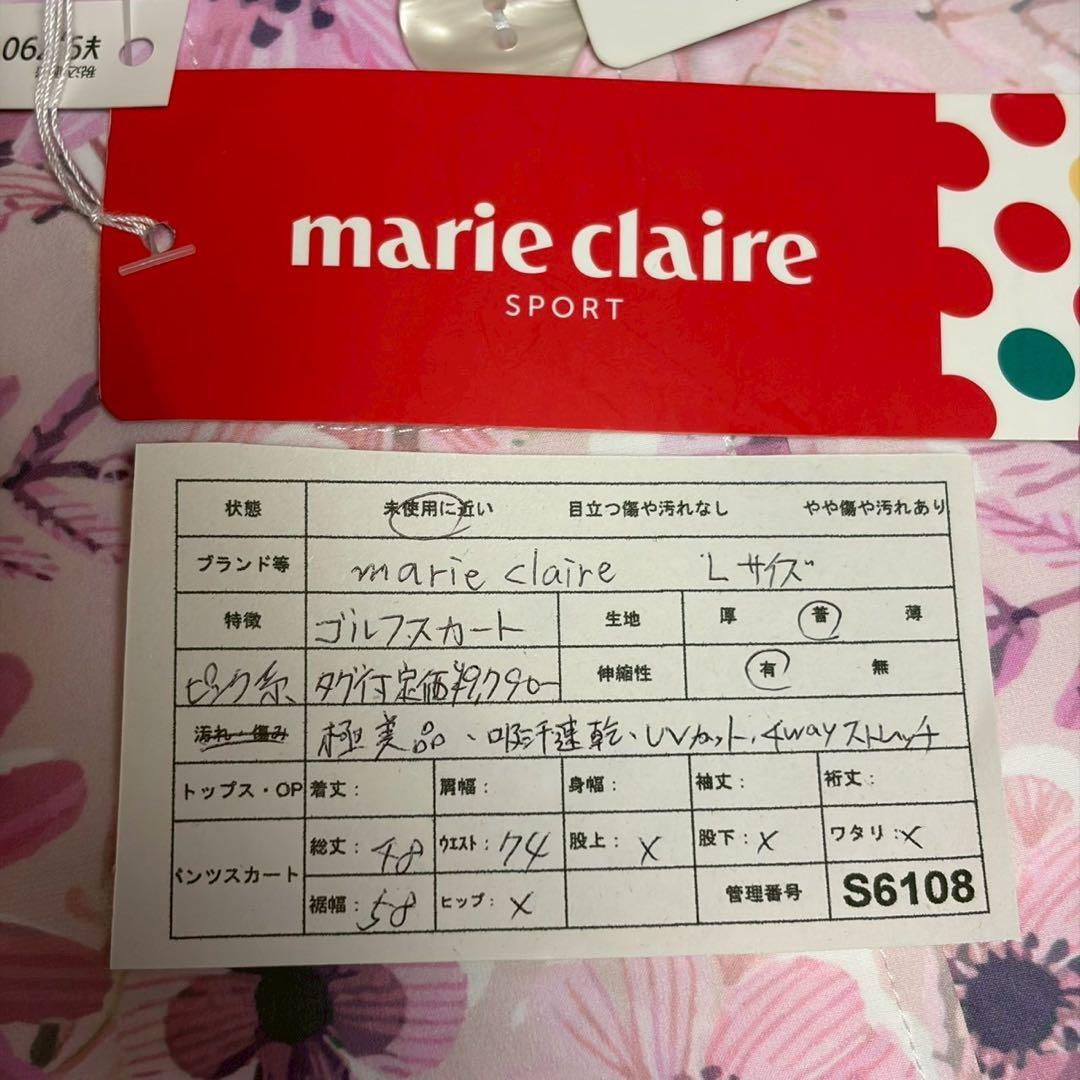 marie claire
SPORT
状態 未使用に近い 目立つ傷や汚れなし やや傷や汚れあり
ブランド等 marie claire Lサイズ
特徴 ゴルフスカート 生地 厚 普 薄
ピンク系 タグ付定価¥9,790- 伸縮性 有 無
汚れ・傷み 極美品、吸汗速乾、UVカット、4wayストレッチ
トップス・OP 着丈: 肩幅: 身幅: 袖丈: 裄丈:
パンツスカート 総丈: 48 ウエスト: 74 股上: X 股下: X ワタリ: X
裾幅: 58 ヒップ: X 管理番号 S6108